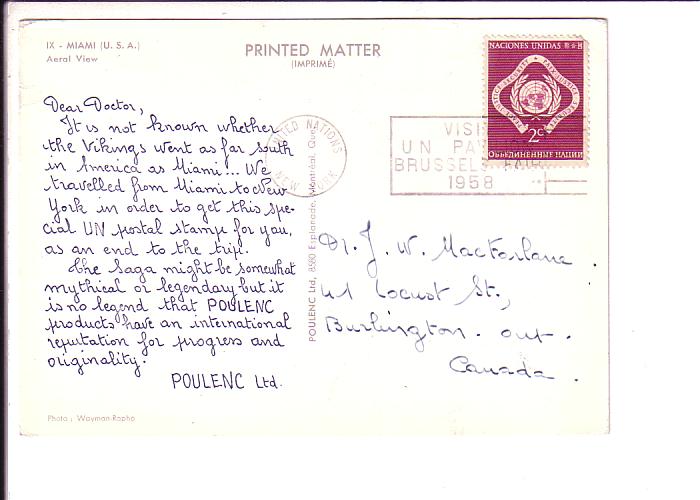 IX - MIAMI (U. S. A.)
Aerial View
PRINTED MATTER
(IMPRIMÉ)
Dear Doctor,
It is not known whether
the Vikings went as far south
in America as Miami!... We
travelled from Miami to New
York in order to get this spe-
cial UN postal stamp for you,
as an end to the trip.
The Saga might be somewhat
mythical or legendary but it
is no legend that POULENC
products have an international
reputation for progress and
originality.
POULENC Ltd.
Photo : Wayman-Rapho
POULENC Ltd, 8580 Esplanade, Montréal, Que.
UNITED NATIONS
NEW YORK
VISIT
UN PAV
BRUSSELS FAIR
1958
NACIONES UNIDAS
2c
ОБЪЕДИНЕННЫЕ НАЦИИ
Dr. J. W. MacFarlane
41 Locust St.,
Burlington. Ont.
Canada.